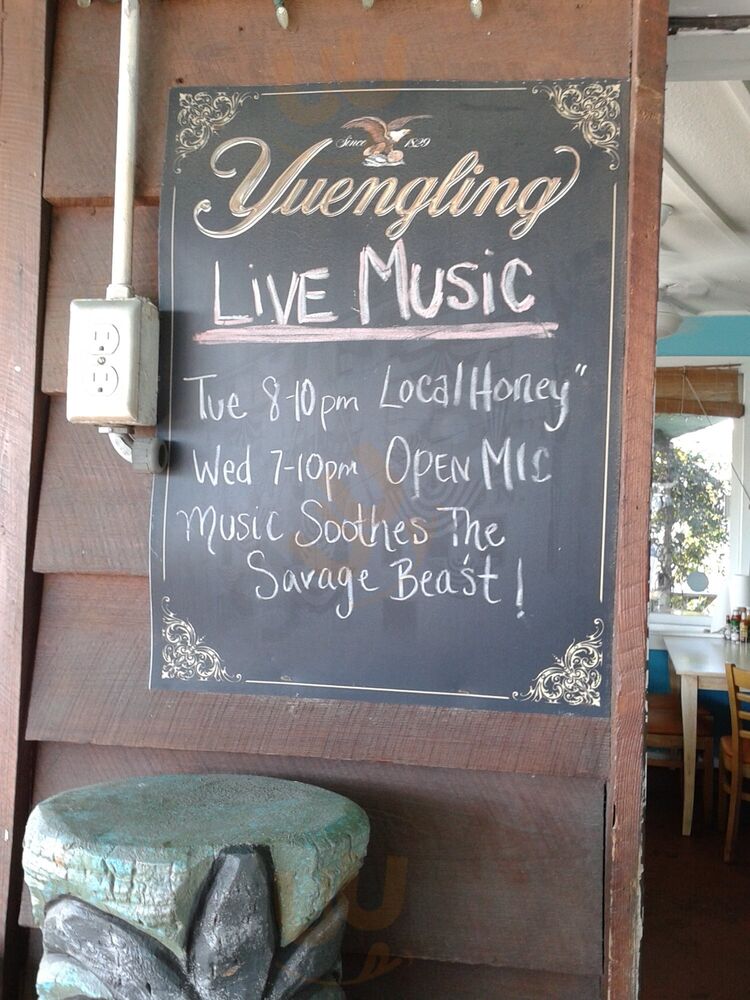 Since 1829
Yuengling
LIVE MUSIC
Tue 8-10pm Local Honey"
Wed 7-10pm OPEN MIC
MUSIC Soothes The
Savage Beast!